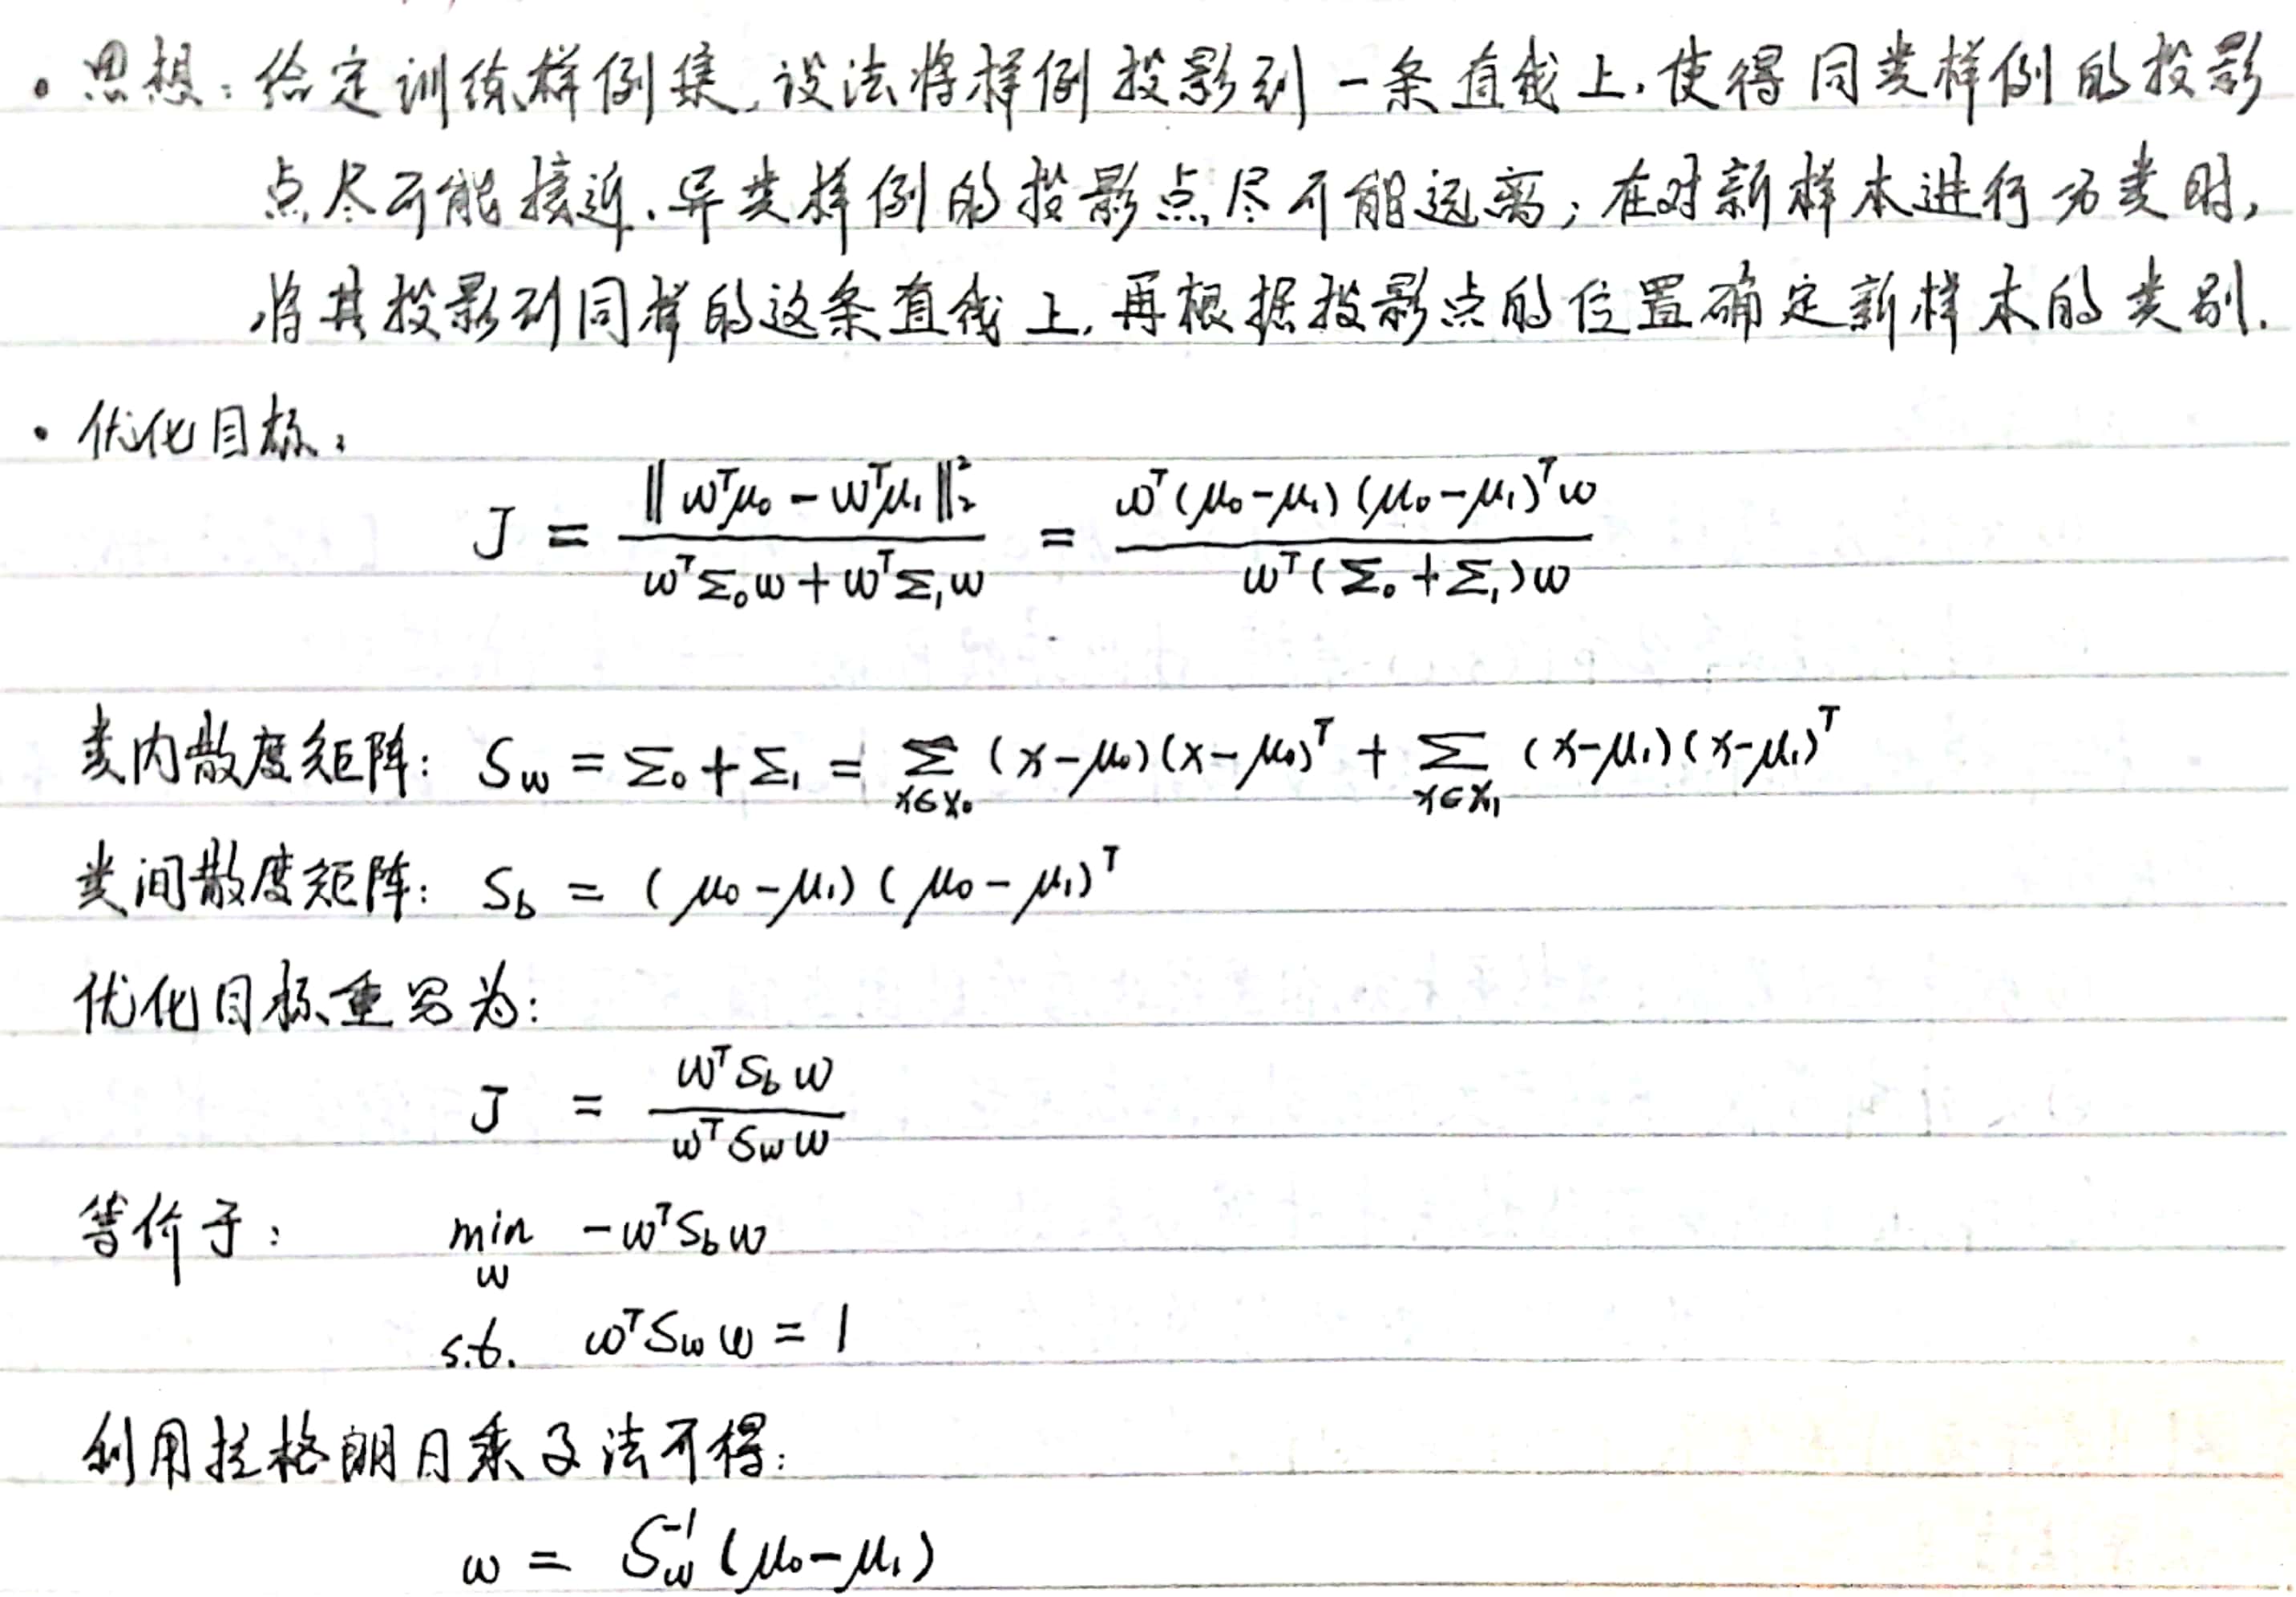 • 思想：给定训练样例集，设法将样例投影到一条直线上，使得同类样例的投影
点尽可能接近、异类样例的投影点尽可能远离；在对新样本进行分类时，
将其投影到同样的这条直线上，再根据投影点的位置确定新样本的类别.
• 优化目标：
J = ‖ωᵀμ₀ - ωᵀμ₁‖₂² / (ωᵀΣ₀ω + ωᵀΣ₁ω) = ωᵀ(μ₀-μ₁)(μ₀-μ₁)ᵀω / ωᵀ(Σ₀+Σ₁)ω
类内散度矩阵： S_w = Σ₀ + Σ₁ = Σ_{x∈X₀} (x-μ₀)(x-μ₀)ᵀ + Σ_{x∈X₁} (x-μ₁)(x-μ₁)ᵀ
类间散度矩阵： S_b = (μ₀-μ₁)(μ₀-μ₁)ᵀ
优化目标重写为：
J = ωᵀS_bω / ωᵀS_wω
等价于： min_ω -ωᵀS_bω
s.t. ωᵀS_wω = 1
利用拉格朗日乘子法可得：
ω = S_w⁻¹(μ₀-μ₁)